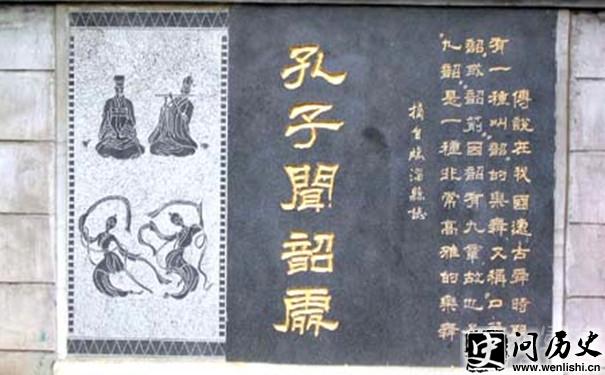 傳說在我國遠古舜時
有一種叫“韶”的樂舞又稱
韶或韶箾因韶有九章故也
九韶是一種非常高雅的樂舞
摘自臨淄縣誌
孔子聞韶處
问历史
www.wenlishi.cn